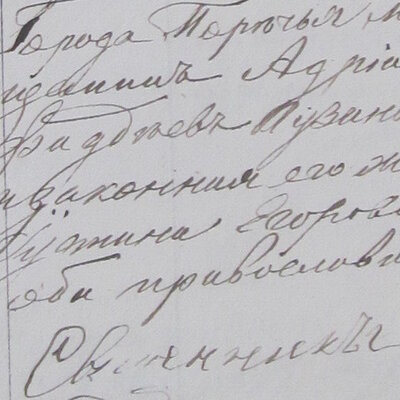 Города Порѣчья м
щанинъ Адріа
Фаддѣевъ Кузано
и законная его ж
Іустина Егорова
оба православн
Священникъ